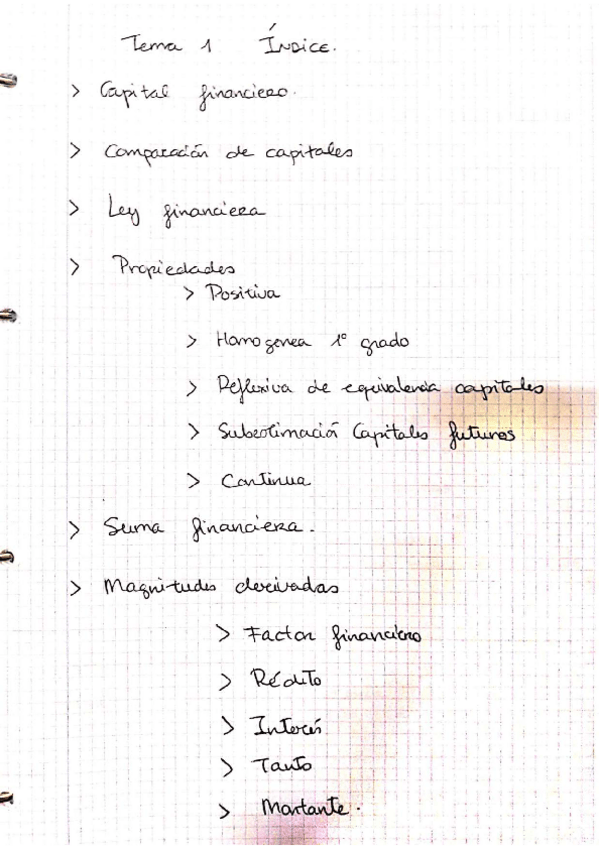 Tema 1 Índice.
> Capital financiero.
> Comparación de capitales
> Ley financiera
> Propiedades
> Positiva
> Homogenea 1º grado
> Reflexiva de equivalencia capitales
> Subestimación Capitales futuros
> Continua
> Suma financiera.
> Magnitudes derivadas
> Factor financiero
> Rédito
> Interés
> Tanto
> Montante.